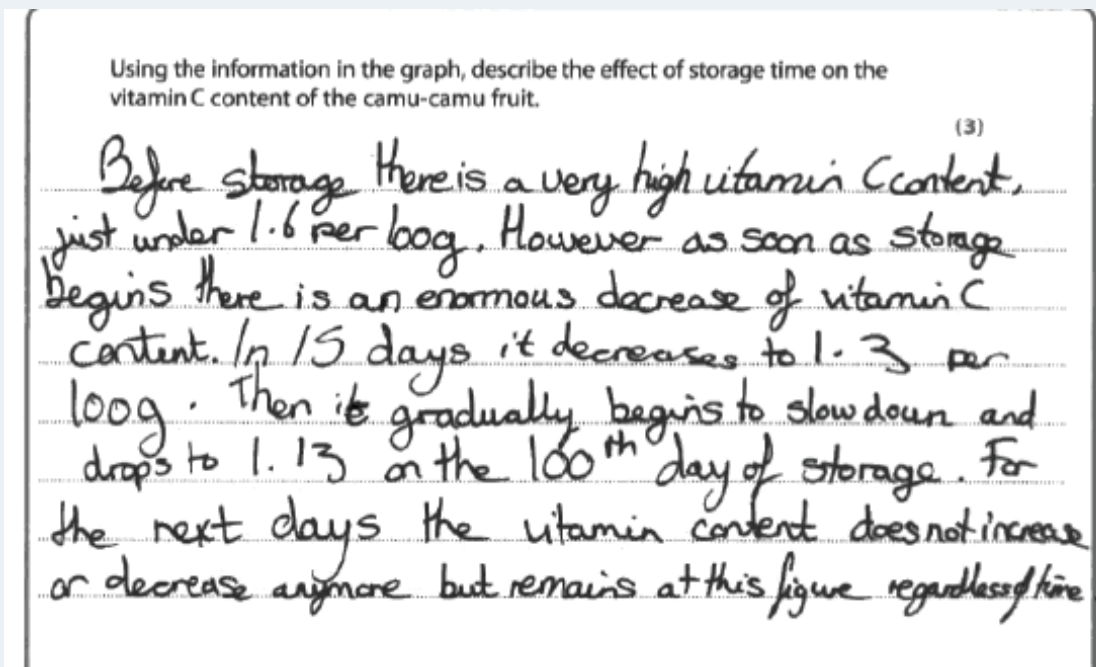 Using the information in the graph, describe the effect of storage time on the
vitamin C content of the camu-camu fruit.
(3)
Before storage there is a very high vitamin C content,
just under 1.6 per 100g. However as soon as storage
begins there is an enormous decrease of vitamin C
content. In 15 days it decreases to 1.3 per
100g. Then it gradually begins to slow down and
drops to 1.13 on the 100th day of storage. For
the next days the vitamin content does not increase
or decrease anymore but remains at this figure regardless of time